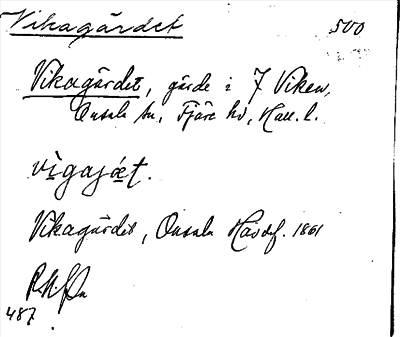 Vikagärdet 500
Vikagärdet, gärde i 7 Viken,
Onsala sn, Fjäre hd, Hall. l.
vìgajæ̀t.
Vikagärdet, Onsala Hävdef. 1861
487.